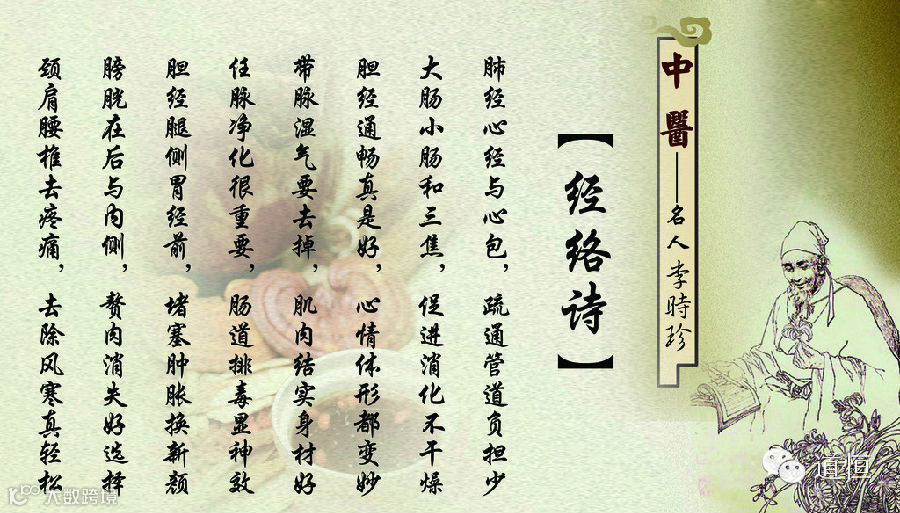 中醫——名人李時珍
【经络诗】
肺经心经与心包，疏通管道负担少
大肠小肠和三焦，促进消化不干燥
胆经通畅真是好，心情体形都变妙
带脉湿气要去掉，肌肉结实身材好
任脉净化很重要，肠道排毒显神效
胆经腿侧胃经前，堵塞肿胀换新颜
膀胱在后与内侧，赘肉消失好选择
颈肩腰椎去疼痛，去除风寒真轻松
道恒
大数跨境